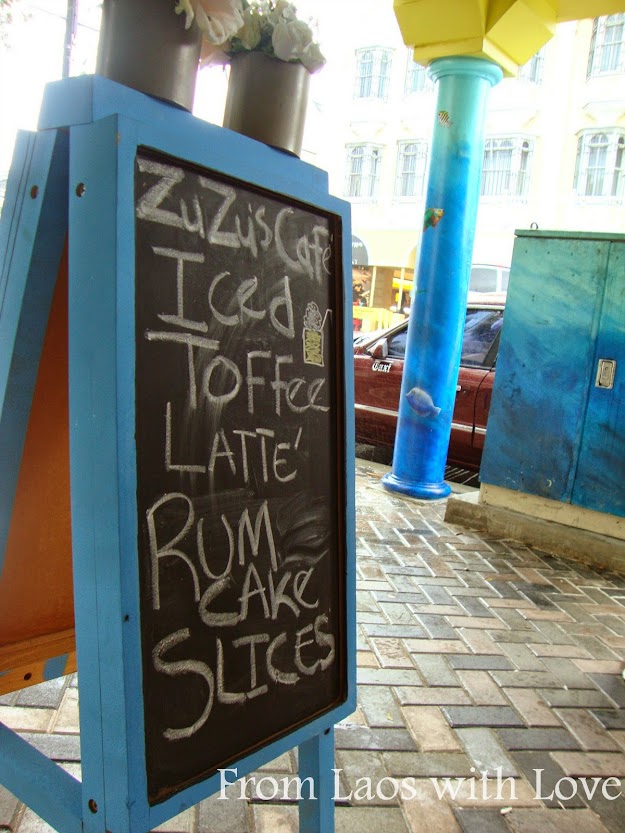 ZuZu's Café
Iced
Toffee
LATTE'
RUM
CAKE
SLICES
Taxi
From Laos with Love